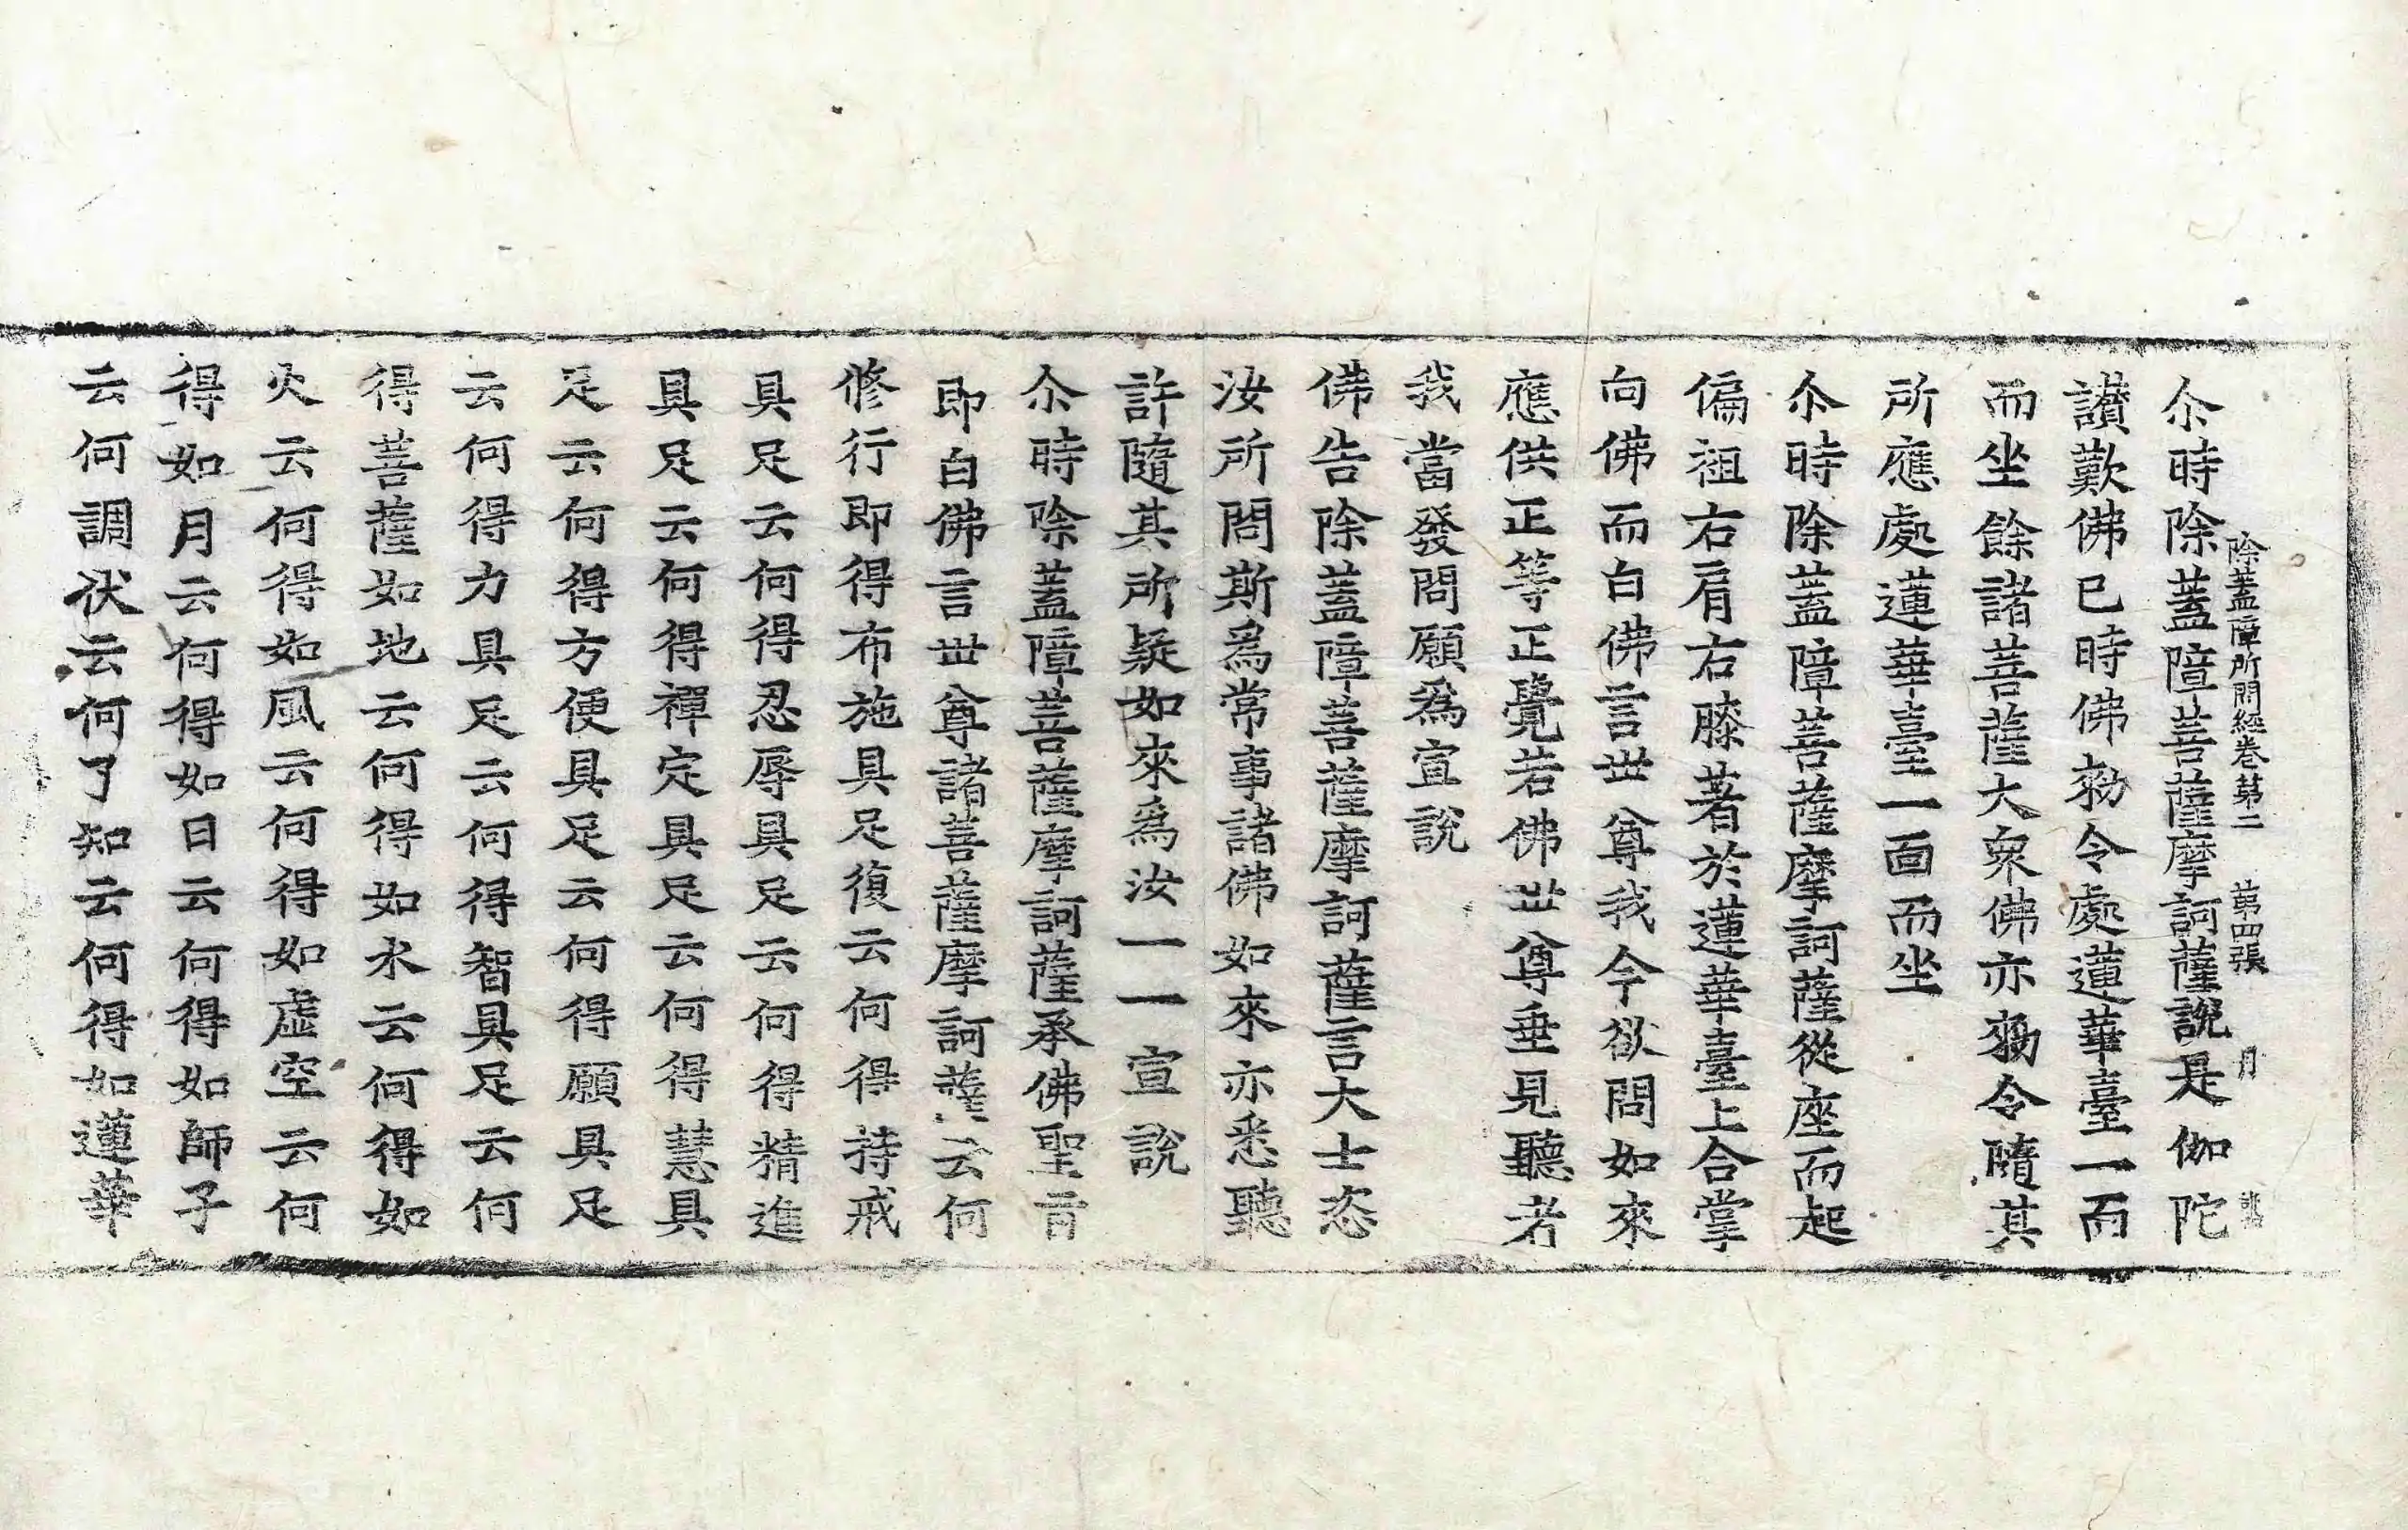 尒時除蓋障菩薩摩訶薩說是伽陀
除蓋障所問經卷第二 第四張 月
讃歎佛已時佛勑令處蓮華臺一面
而坐餘諸菩薩大衆佛亦勑令隨其
所應處蓮華臺一面而坐
尒時除蓋障菩薩摩訶薩從座而起
偏袒右肩右膝著於蓮華臺上合掌
向佛而白佛言世尊我今欲問如來
應供正等正覺若佛世尊垂見聽者
我當發問願爲宣說
佛告除蓋障菩薩摩訶薩言大士恣
汝所問斯爲常事諸佛如來亦悉聽
許隨其所疑如來爲汝一一宣說
尒時除蓋障菩薩摩訶薩承佛聖旨
即白佛言世尊諸菩薩摩訶薩云何
修行即得布施具足復云何得持戒
具足云何得忍辱具足云何得精進
具足云何得禪定具足云何得慧具
足云何得方便具足云何得願具足
云何得力具足云何得智具足云何
得菩薩如地云何得如水云何得如
火云何得如風云何得如虛空云何
得如月云何得如日云何得如師子
云何調伏云何了知云何得如蓮華